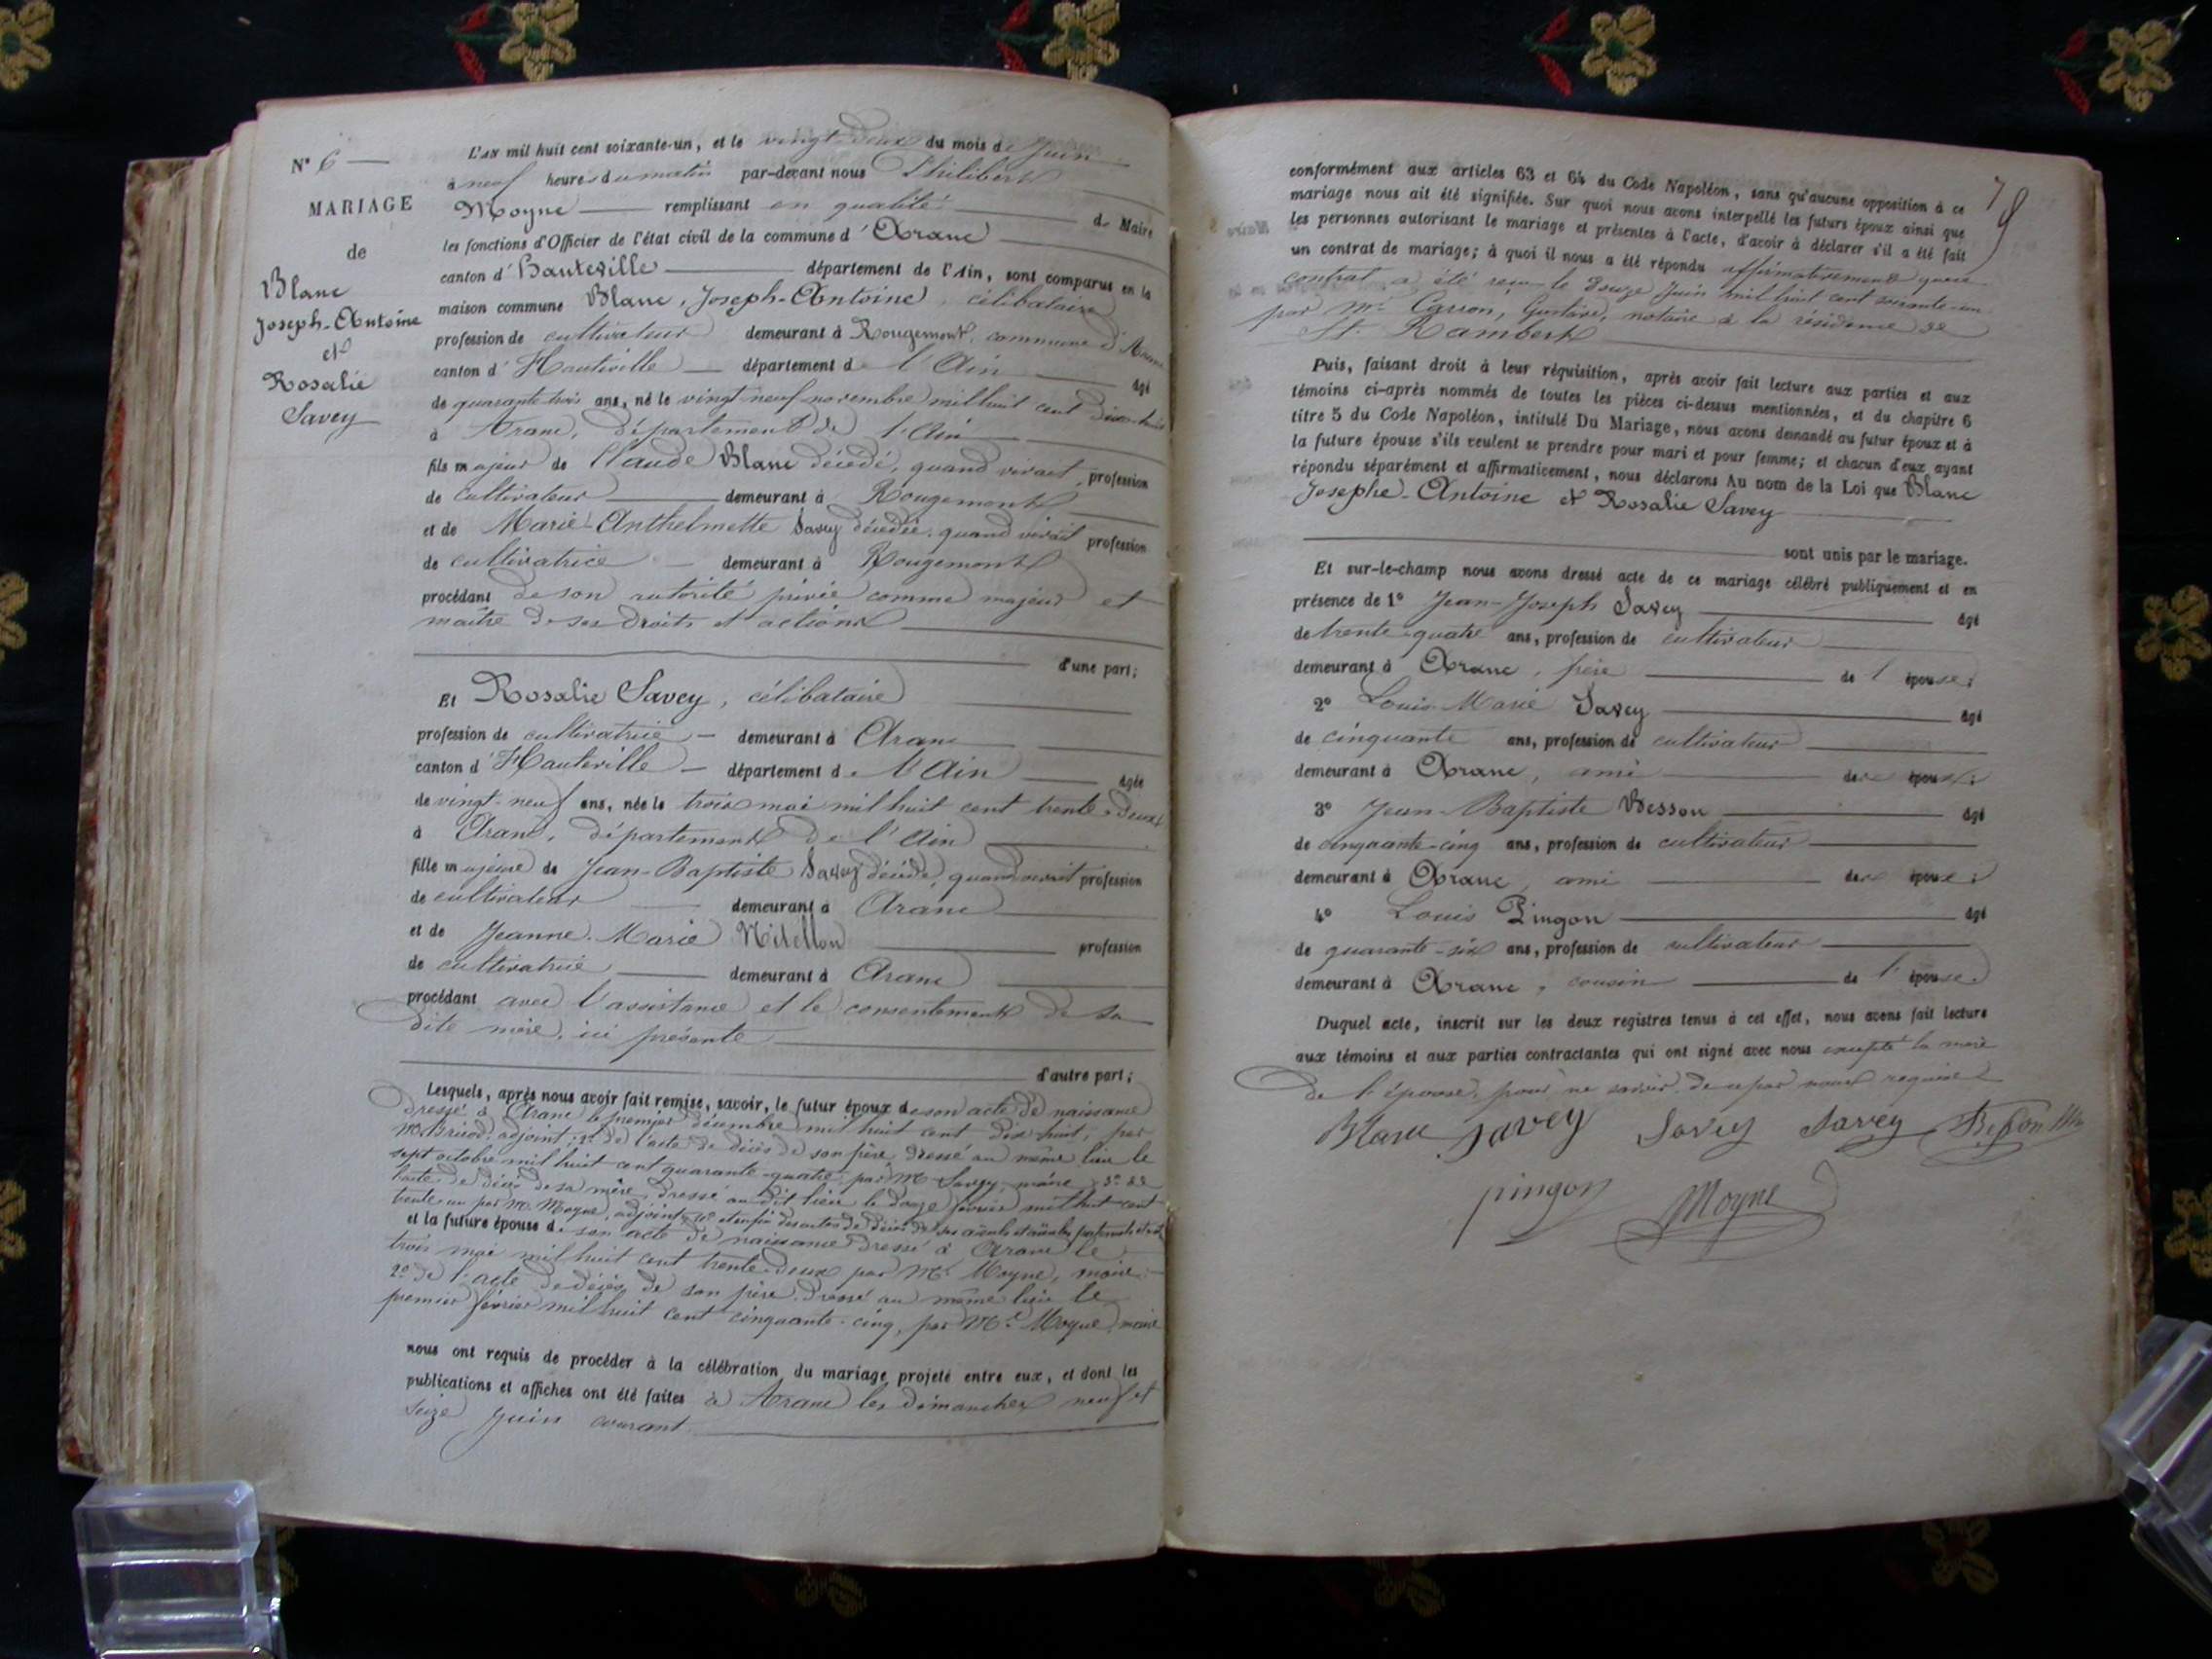 N° 6
MARIAGE
de
Blanc
Joseph-Antoine
et
Rosalie
Savey
L'AN mil huit cent soixante-un, et le vingt-deux du mois de Juin
à neuf heures du matin par-devant nous Philibert
Moyne remplissant en qualité de Maire
les fonctions d'Officier de l'état civil de la commune d'Aranc
canton d'Hauteville département de l'Ain, sont comparus en la
maison commune Blanc, Joseph-Antoine, célibataire
profession de cultivateur demeurant à Rougemont, commune d'Aranc
canton d'Hauteville département de l'Ain âgé
de quarante-trois ans, né le vingt-neuf novembre mil huit cent dix-huit
à Aranc, département de l'Ain
fils majeur de Claude Blanc décédé, quand vivait, profession
de cultivateur demeurant à Rougemont
et de Marie-Anthelmette Savey décédée, quand vivait profession
de cultivatrice demeurant à Rougemont
procédant de son autorité privée comme majeur et
maître de ses droits et actions
d'une part;
Et Rosalie Savey, célibataire
profession de cultivatrice demeurant à Aranc
canton d'Hauteville département de l'Ain âgée
de vingt-neuf ans, née le trois mai mil huit cent trente-deux
à Aranc, département de l'Ain
fille majeure de Jean-Baptiste Savey décédé, quand vivait profession
de cultivateur demeurant à Aranc
et de Jeanne-Marie profession
de cultivatrice demeurant à Aranc
procédant avec l'assistance et le consentement de sa
dite mère, ici présente
d'autre part;
Lesquels, après nous avoir fait remise, savoir, le futur époux de son acte de naissance
dressé à Aranc le premier décembre mil huit cent dix-huit, par
M. adjoint; 2° de l'acte de décès de son père dressé au même lieu le
sept octobre mil huit cent quarante-quatre par Mr Savey maire 3° de
l'acte de décès de sa mère dressé au dit lieu le douze février mil huit cent
trente-un par Mr Moyne, adjoint, et enfin des actes de décès de ses aïeuls et aïeules paternels et
et la future épouse de son acte de naissance dressé à Aranc le
trois mai mil huit cent trente-deux par Mr Moyne, maire
2° de l'acte de décès de son père dressé au même lieu le
premier février mil huit cent cinquante-cinq, par Mr Moyne, maire
nous ont requis de procéder à la célébration du mariage projeté entre eux, et dont les
publications et affiches ont été faites à Aranc les dimanches neuf et
seize Juin courant.
conformément aux articles 63 et 64 du Code Napoléon, sans qu'aucune opposition à ce
mariage nous ait été signifiée. Sur quoi nous avons interpellé les futurs époux ainsi que
les personnes autorisant le mariage et présentes à l'acte, d'avoir à déclarer s'il a été fait
un contrat de mariage; à quoi il nous a été répondu affirmativement que
contrat a été reçu le douze Juin mil huit cent soixante-un
par Mr Carron, Gustave, notaire à la résidence de
St Rambert
Puis, faisant droit à leur réquisition, après avoir fait lecture aux parties et aux
témoins ci-après nommés de toutes les pièces ci-dessus mentionnées, et du chapitre 6
titre 5 du Code Napoléon, intitulé DU MARIAGE, nous avons demandé au futur époux et à
la future épouse s'ils veulent se prendre pour mari et pour femme; et chacun d'eux ayant
répondu séparément et affirmativement, nous déclarons AU NOM DE LA LOI que Blanc
Josephe-Antoine et Rosalie Savey
sont unis par le mariage.
Et sur-le-champ nous avons dressé acte de ce mariage célébré publiquement et en
présence de 1° Jean-Joseph Savey âgé
de trente-quatre ans, profession de cultivateur
demeurant à Aranc, frère de l'épouse;
2° Louis-Marie Savey âgé
de cinquante ans, profession de cultivateur
demeurant à Aranc, ami des époux;
3° Jean-Baptiste Besson âgé
de cinquante-cinq ans, profession de cultivateur
demeurant à Aranc, ami des époux;
4° Louis Pingon âgé
de quarante-six ans, profession de cultivateur
demeurant à Aranc, cousin de l'épouse.
Duquel acte, inscrit sur les deux registres tenus à cet effet, nous avons fait lecture
aux témoins et aux parties contractantes qui ont signé avec nous excepté la mère
de l'épouse, pour ne savoir de ce par nous requise
Blanc Savey Savey Savey Besson
pingon Moyne